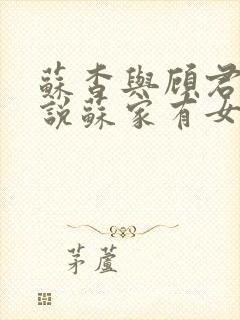 蘇杳與顧君
說蘇家有女
茅蘆